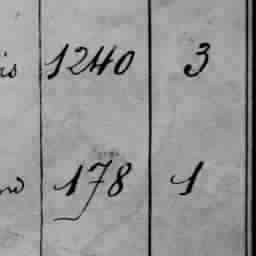 is 1240 3
178 1